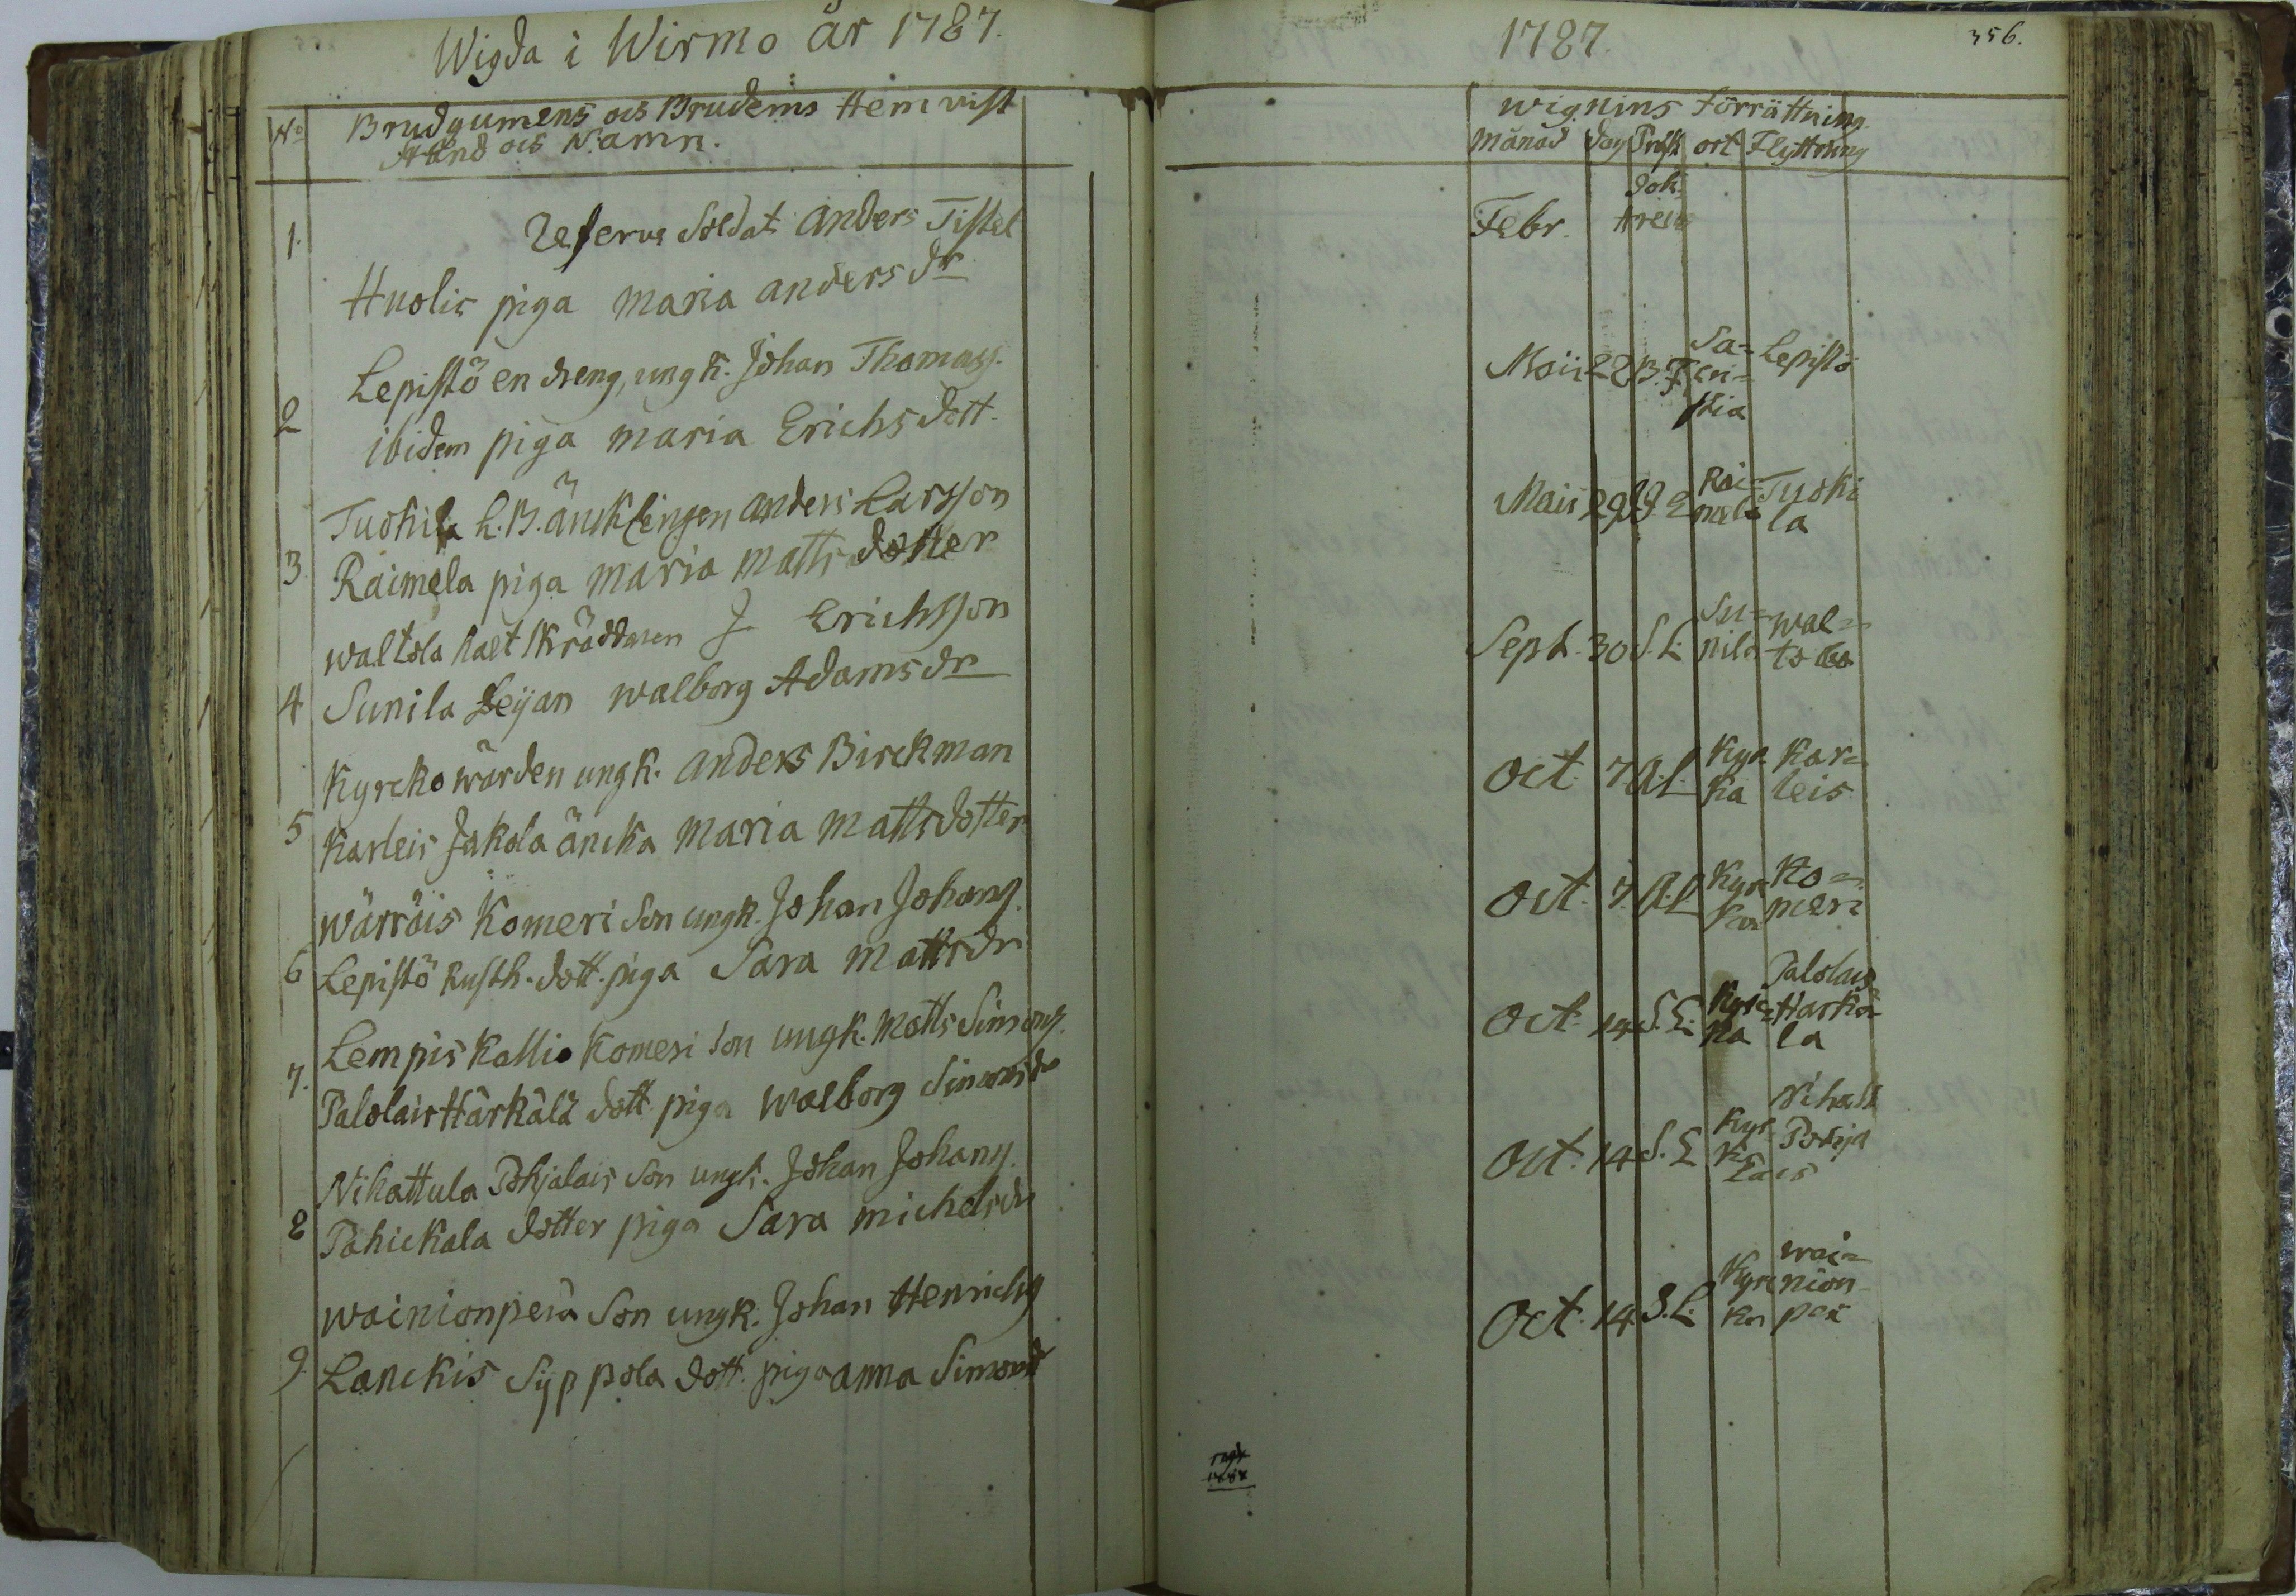 Wigda i Wirmo år 1787.
No Brudgumens och Brudens Hemvist
Stånd och Namn.
1. Reserve Soldat Anders Tistel
Huolis piga Maria Anders dr
Lepistö en dreng, ungk. Johan Thomass.
2 ibidem piga Maria Erichs dott.
Tuokila L.B. äncklingen Anders Larsson
3 Raimela piga Maria Matts dotter
Waltola Skräddaren J. Erichsson
4 Sunila Walborg Adams dr
Kyrckowärden ungk. Anders Birckman
5 Karleis Jakola äncka Maria Mattsdotter
Wärräis Komeri Son ungk. Johan Johans.
6 Lepistö Rusth. dott. piga Sara Matts dr
Lempis Kallio Komeri Son ungk. Matts Simons.
7. Palolais Härkälä dott piga Walborg Simons dr
Nihattula Pohjalais Son ungk. Johan Johans.
8 Pahickala dotter piga Sara Michels dr
Wainionperä Son ungk. Johan Henrichs
9. Lanckis Syppola dott. piga Anna Simons dr
1787. 356.
Wignins Förrättning
Månad Dag Prest ort Flyttning
Febr.
Maii 28 B.F. Sa= Lepistö
eri=
stia
Maii 29 Rai= Tuoki
mela la
Sept. 30 S.L. Su= Wal=
nila tola
Oct. 7 A.L. Kyr Kar=
ka leis
Oct. 7. A.L. Kyr Ko=
ka meri
Palolais
Oct. 14 S.L. Kyrc= Härkä
ka la
Nihatt
Oct. 14 S.L. Kyr= Pohja
ka lais
Wai=
Oct. 14 S.L. Kyrc nion
ka perä